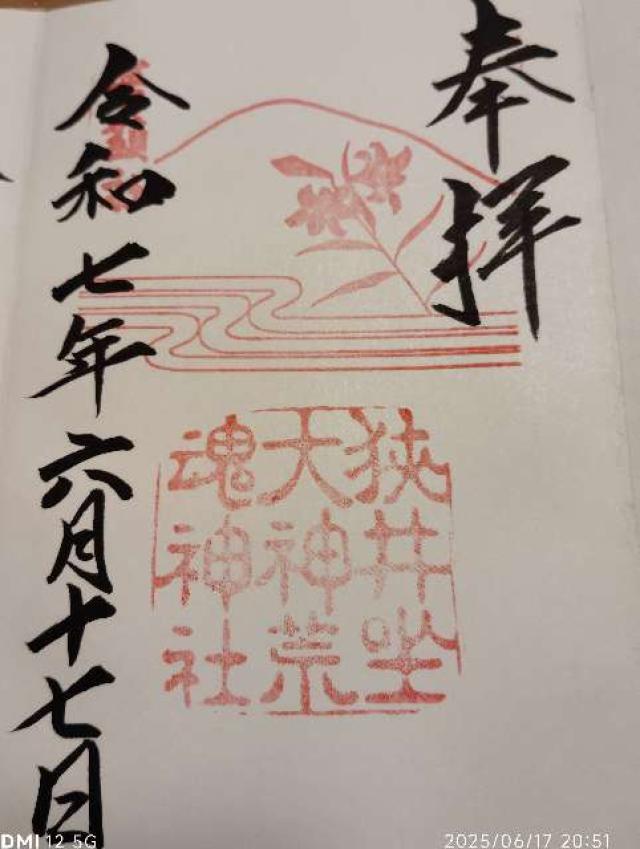 奉拝
狭井坐
大神荒
魂神社
令和七年六月十七日
DMI 12 5G
2025/06/17 20:51